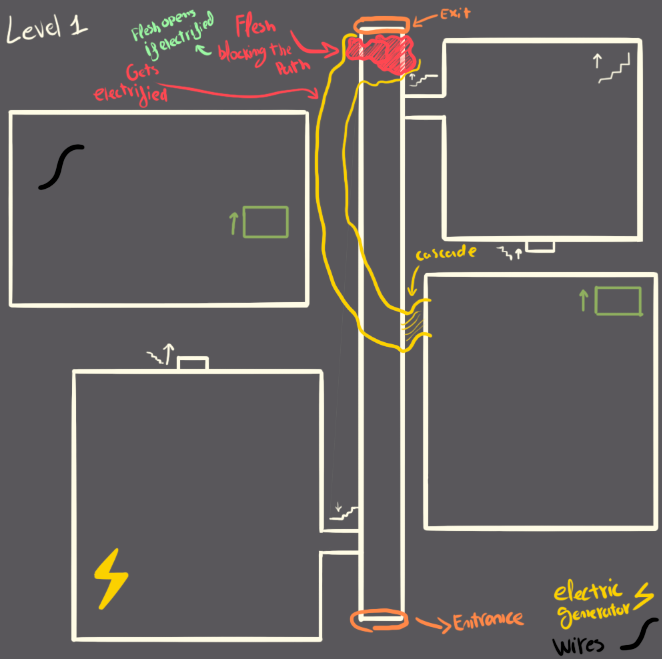 Level 1
Flesh opens
if electrified
Flesh
blocking the
Path
Gets
electrified
Exit
cascade
Entrance
electric
generator
Wires